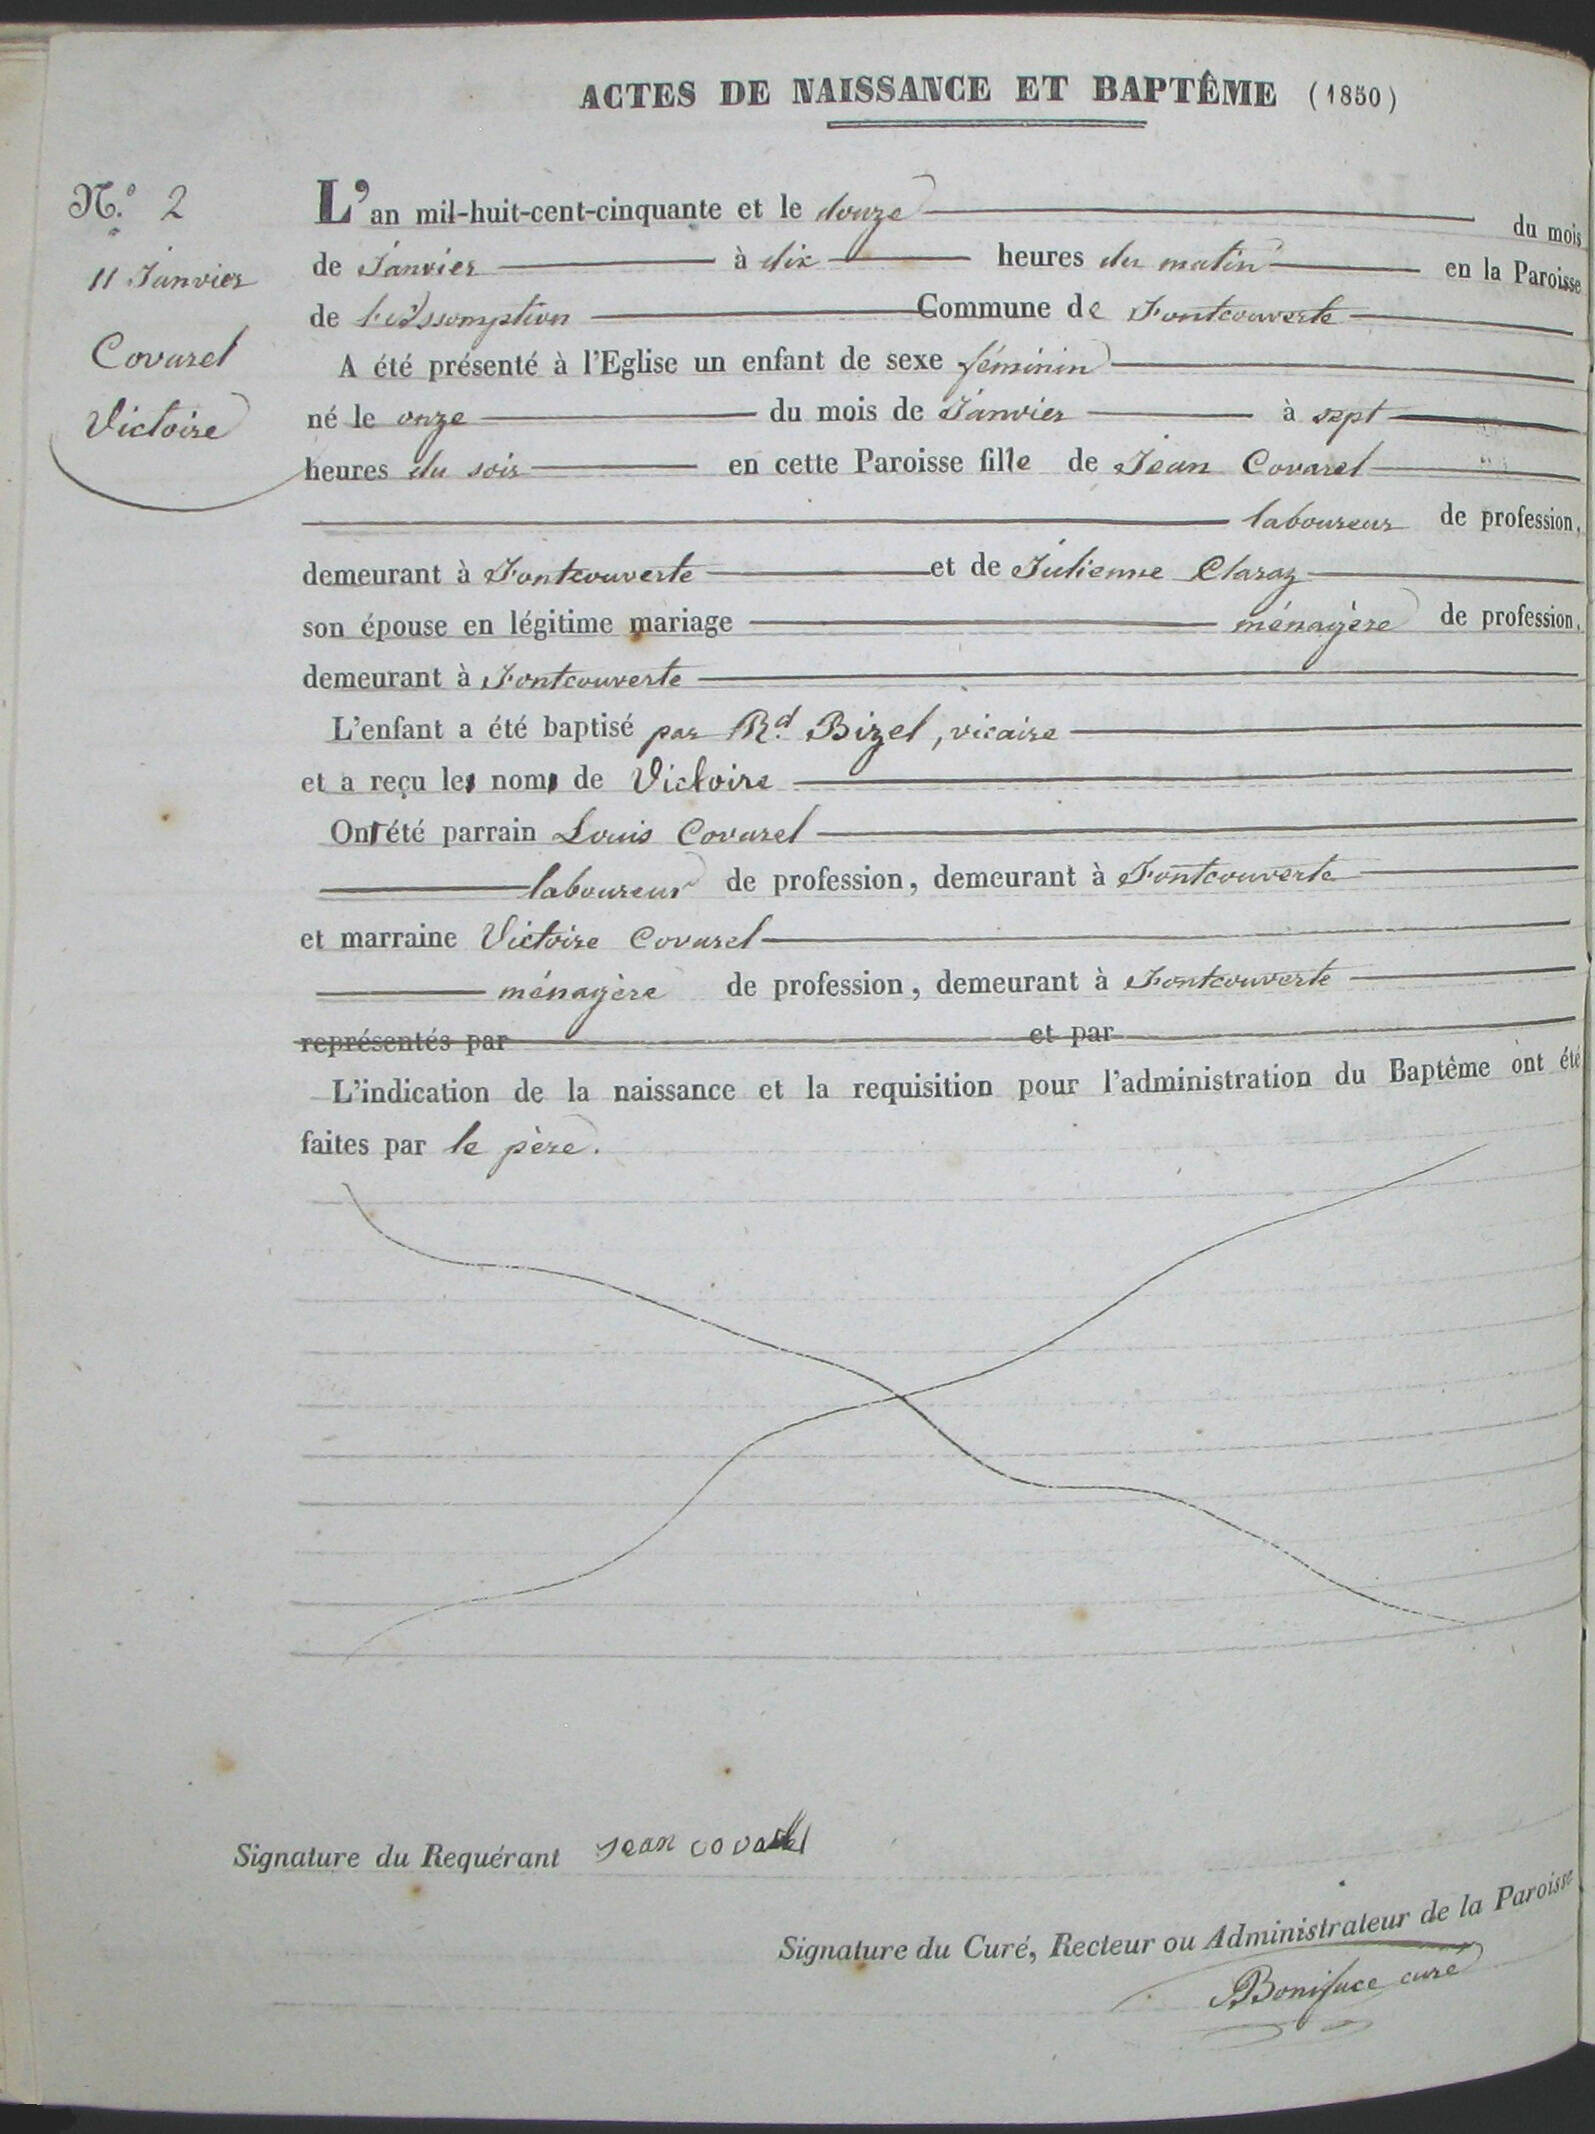 ACTES DE NAISSANCE ET BAPTÊME (1850)
N.° 2
11 Janvier
Covarel
Victoire
L'an mil-huit-cent-cinquante et le douze du mois
de Janvier à dix heures du matin en la Paroisse
de L'Assomption Commune de Fontcouverte
A été présenté à l'Eglise un enfant de sexe féminin
né le onze du mois de Janvier à sept
heures du soir en cette Paroisse fille de Jean Covarel
laboureur de profession,
demeurant à Fontcouverte et de Julienne Claraz
son épouse en légitime mariage ménagère de profession,
demeurant à Fontcouverte
L'enfant a été baptisé par Rd. Bizel, vicaire
et a reçu les noms de Victoire
Ont été parrain Louis Covarel
laboureur de profession, demeurant à Fontcouverte
et marraine Victoire Covarel
ménagère de profession, demeurant à Fontcouverte
représentés par et par
L'indication de la naissance et la requisition pour l'administration du Baptême ont été
faites par le père.
Signature du Requérant Jean covarel
Signature du Curé, Recteur ou Administrateur de la Paroisse
Boniface curé